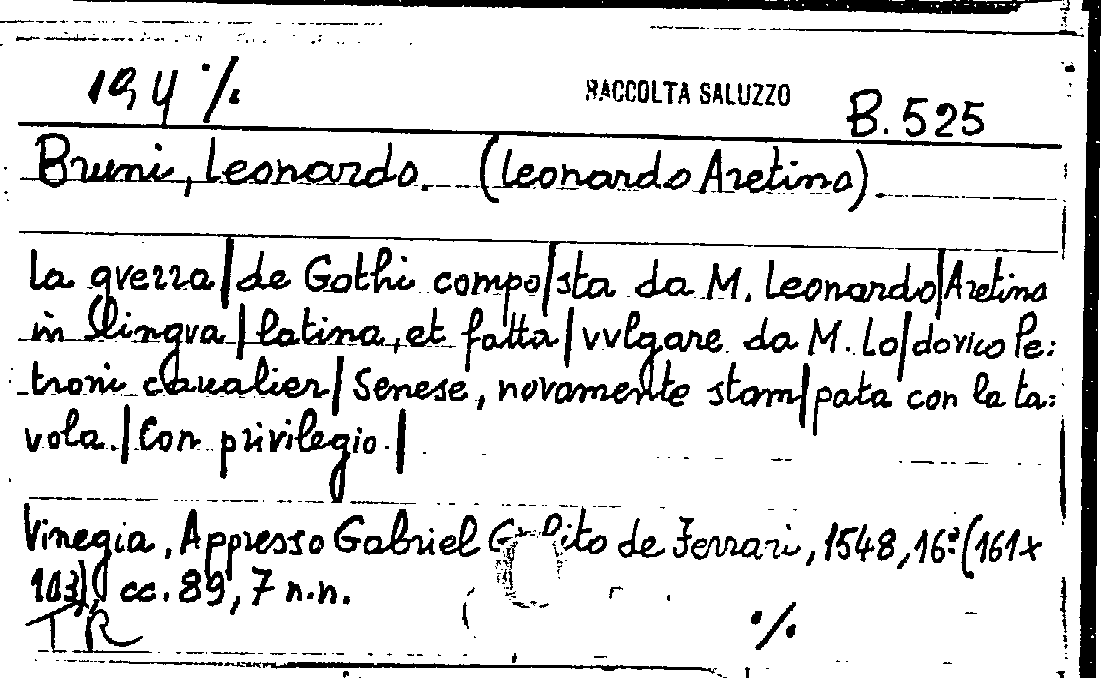 194 ·/.
RACCOLTA SALUZZO
B.525
Bruni, Leonardo. (Leonardo Aretino).
La gverra|de Gothi compo|sta da M. Leonardo|Aretino
in lingva|latina, et fatta|vvlgare da M. Lo|dovico Pe:
troni caualier|Senese, novamente stam|pata con la ta:
vola.|Con privilegio.|
Vinegia, Appresso Gabriel Giolito de Ferrari, 1548, 16º (161x
103), cc. 89, 7 n.n.
TR
·/.